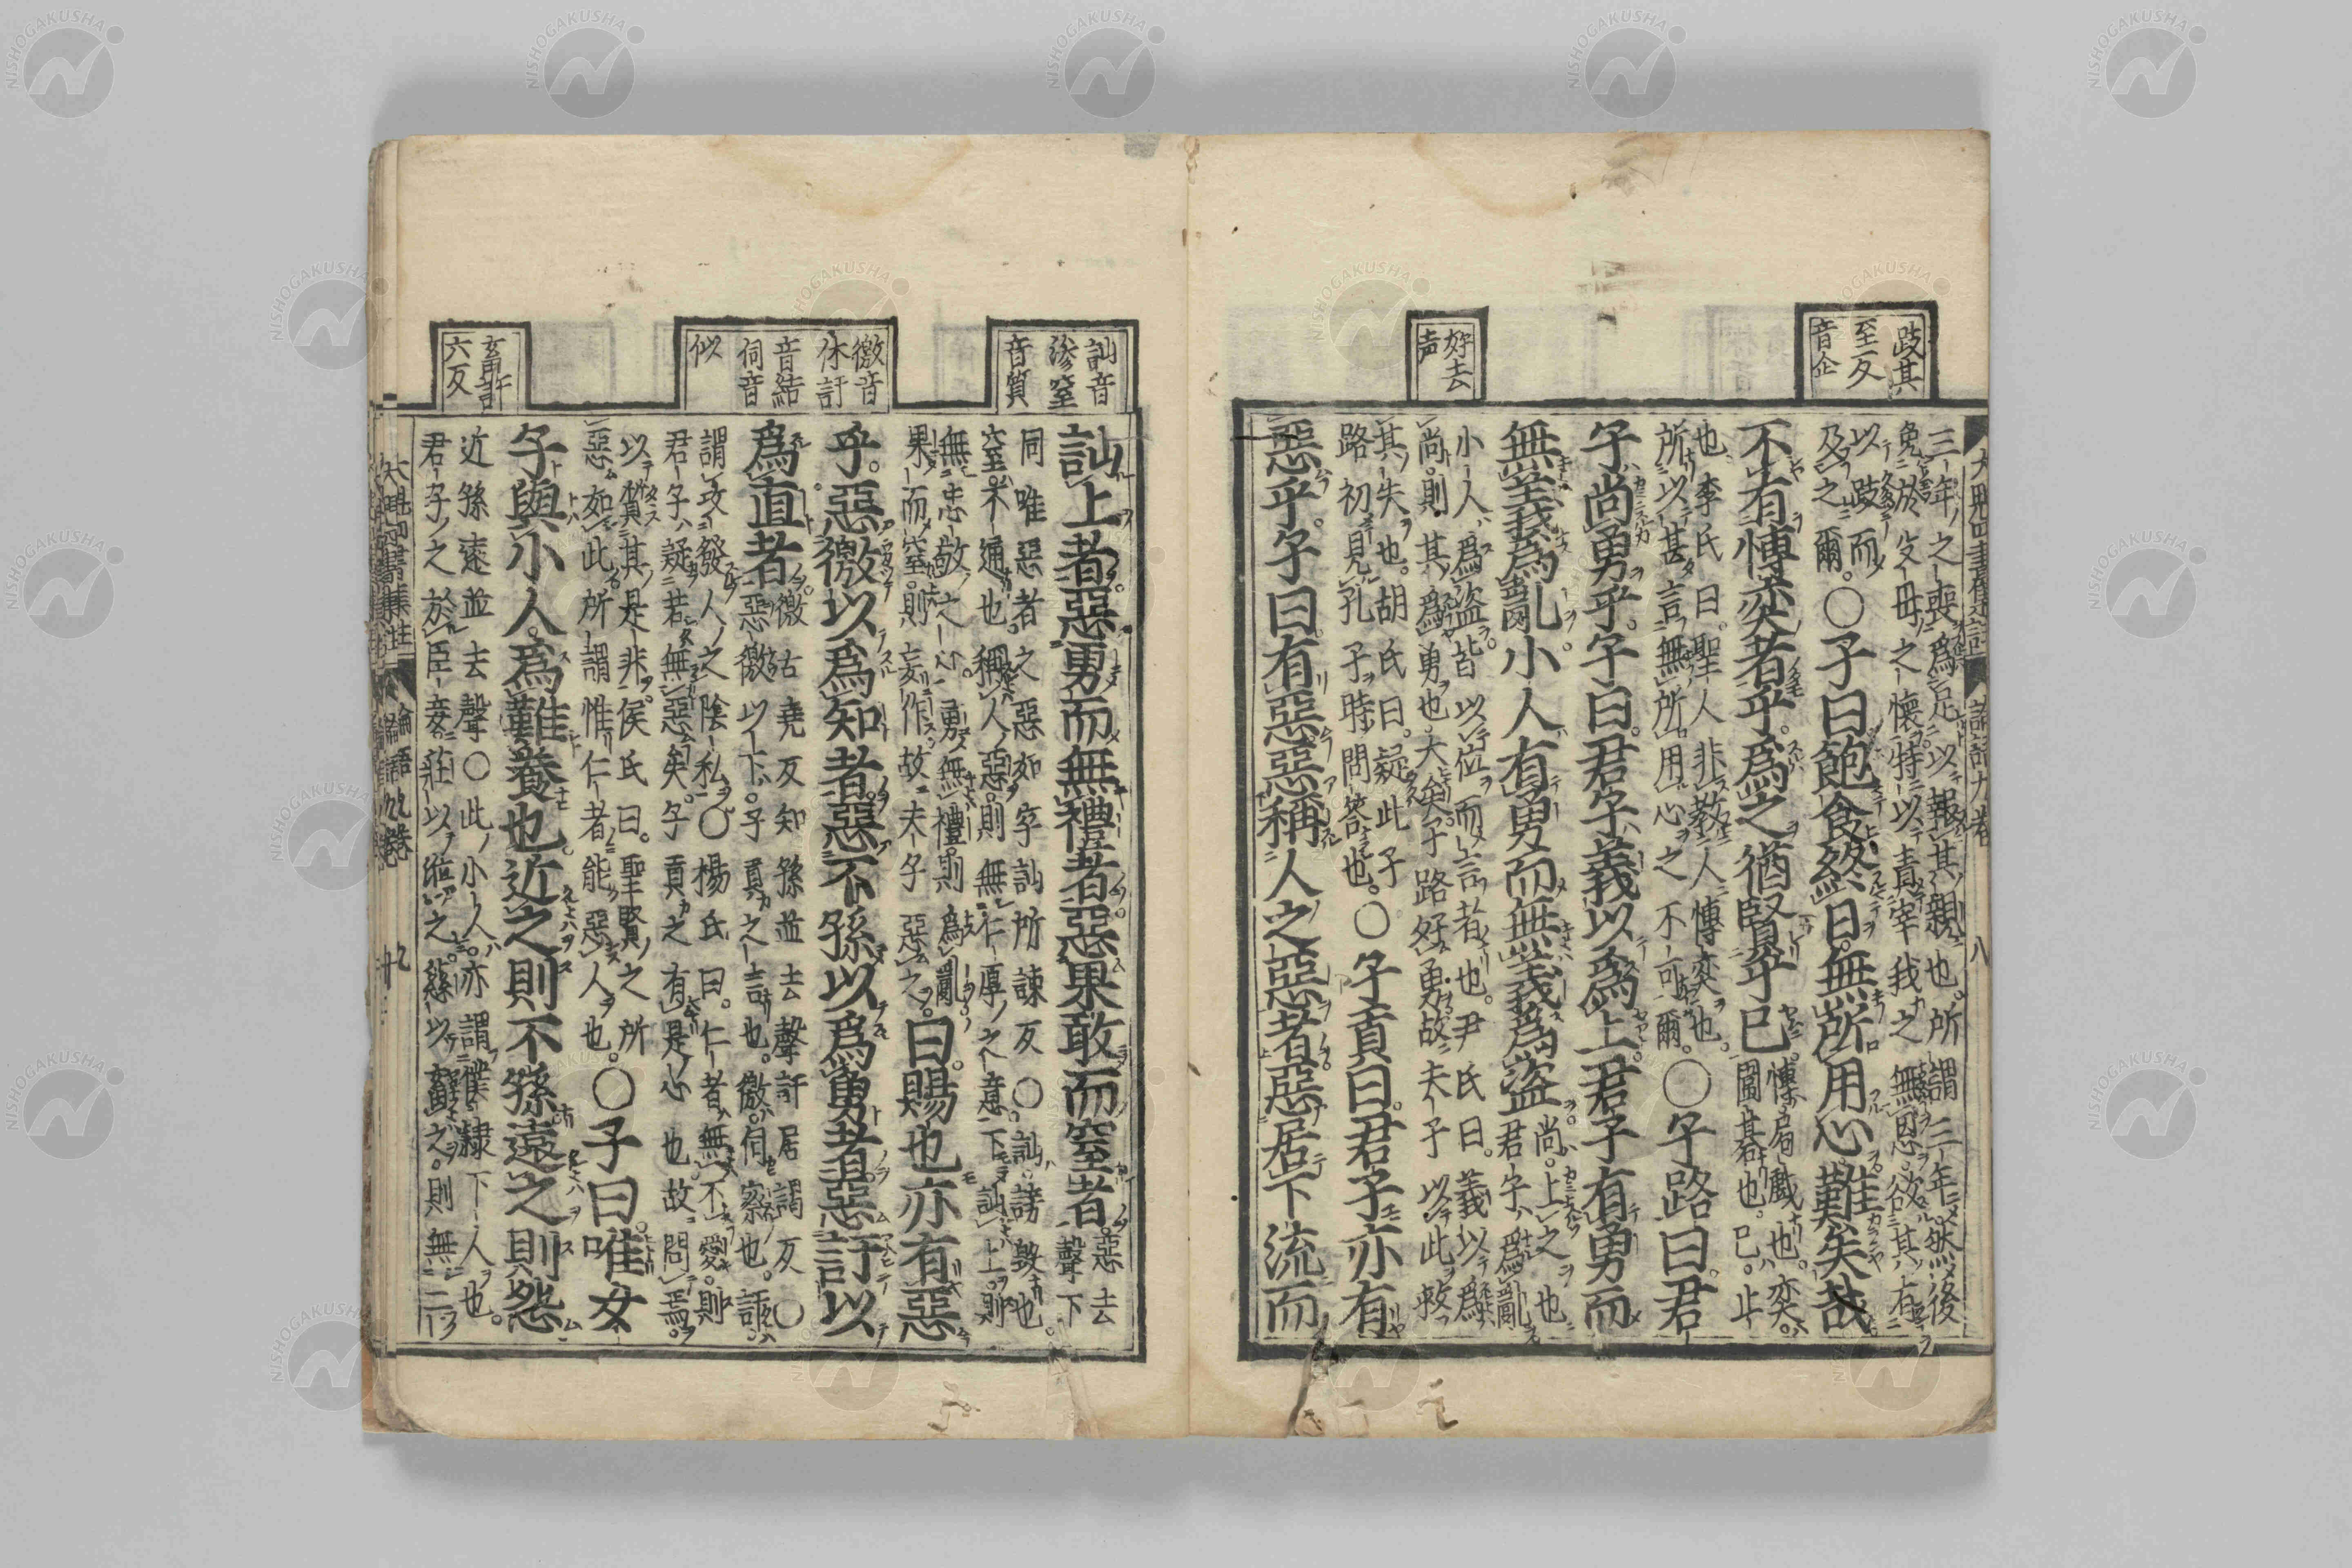 跂其
至反
音企
好去
声
三年之喪爲足以報其親也。所謂三年然後
免於父母之懷特以責宰我之無恩。欲其有
以跂而
及之爾。〇子曰飽食終日。無所用心。難矣哉
不有博奕者乎。爲之猶賢乎已博局戲也。奕。
圍碁也。已。止
也。李氏曰。聖人非教人博奕也。
所以甚言無所。用心之不可爾。〇子路曰。君
子尚勇乎。子曰。君子義以爲上。君子有勇而
無義爲亂。小人有勇而無義爲盗尚。上之也
君子爲亂
小人爲盗。皆以位而言者也。尹氏曰。義以爲
尚。則其爲勇也。大矣。子路好勇。故夫子以此救
其失也。胡氏曰。疑此子
路初見孔子時問答也。〇子貢曰。君子亦有
惡乎。子曰。有惡。惡稱人之惡者。惡居下流而
訕音
渗窒
音質
徼音
休訐
音結
伺音
似
畜許
六反
訕上者。惡勇而無禮者。惡果敢而窒者。惡去
聲下
同唯惡者之惡如字訕所諫反〇訕。謗毀也。
窒。不通也。稱人惡。則無仁厚之意。下訕上。則
無忠敬之心。勇無禮。則爲亂。
果而窒。則妄作故夫子惡之。曰。賜也亦有惡
乎。惡徼以爲知者。惡不孫以爲勇者。惡訐以
爲直者。惡徼古堯反知孫並去聲訐居謁反〇
惡徼以下。子貢之言也。徼。伺察也。訐。
謂攻發人之陰私。〇楊氏曰。仁者無不愛。則
君子疑若無惡矣。子貢之有是心也故問焉。
以質其是非。侯氏曰。聖賢之所
惡如此。所謂惟仁者能惡人也。〇子曰。唯女
子與小人。爲難養也。近之則不孫。遠之則怨
近孫遠並去聲〇此小人。亦謂僕隷下人也。
君子之於臣妾。莊以涖之。慈以畜之。則無二